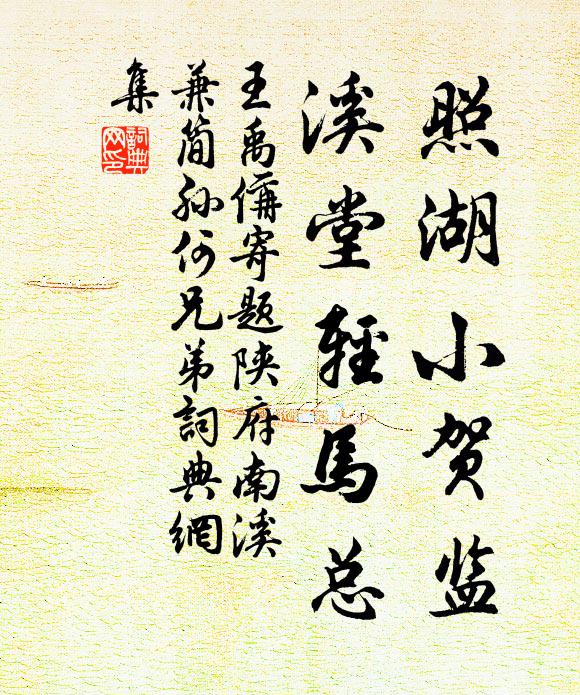 照湖小贺监
溪堂轻馬总
王禹偁寄題陕府南溪
兼简孙何兄弟詞典網
集
詞典网印